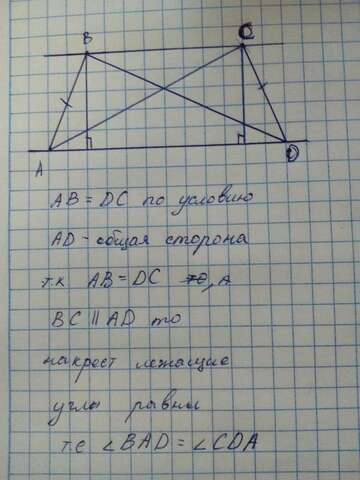 B C
A D
AB = DC по условию
AD - общая сторона
т.к AB = DC то, а
BC || AD то
накрест лежащие
углы равны
т.е ∠BAD = ∠CDA